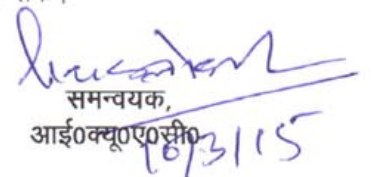 समन्वयक,
आई०क्यू०ए०सी०
10/3/15